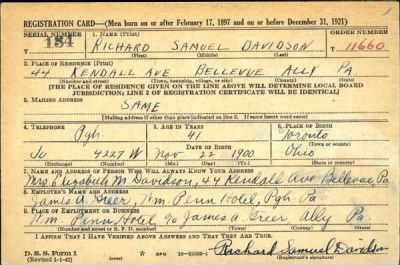 REGISTRATION CARD—(Men born on or after February 17, 1897 and on or before December 31, 1921)
SERIAL NUMBER 1. NAME (Print) ORDER NUMBER
184 RICHARD SAMUEL DAVIDSON 11660
(First) (Middle) (Last)
2. PLACE OF RESIDENCE (Print)
44 KENDALL AVE BELLEVUE ALLY PA
(Number and street) (Town, township, village, or city) (County) (State)
[THE PLACE OF RESIDENCE GIVEN ON THE LINE ABOVE WILL DETERMINE LOCAL BOARD
JURISDICTION; LINE 2 OF REGISTRATION CERTIFICATE WILL BE IDENTICAL]
3. MAILING ADDRESS
SAME
[Mailing address if other than place indicated on line 2. If same insert word same]
4. TELEPHONE 5. AGE IN YEARS 6. PLACE OF BIRTH
Pgh 41 Toronto
DATE OF BIRTH (Town or county)
4227 W Nov 22 1900 Ohio
(Exchange) (Number) (Mo.) (Day) (Yr.) (State or country)
7. NAME AND ADDRESS OF PERSON WHO WILL ALWAYS KNOW YOUR ADDRESS
Mrs Elizabeth M Davidson, 44 Kendall Ave Bellevue, Pa
8. EMPLOYER'S NAME AND ADDRESS
James A. Greer, Wm Penn Hotel, Pgh Pa
9. PLACE OF EMPLOYMENT OR BUSINESS
Wm. Penn Hotel % James A. Greer Ally Pa.
(Number and street or R. F. D. number) (Town) (County) (State)
I AFFIRM THAT I HAVE VERIFIED ABOVE ANSWERS AND THAT THEY ARE TRUE.
D. S. S. Form 1
(Revised 1-1-42) GPO Richard Samuel Davidson